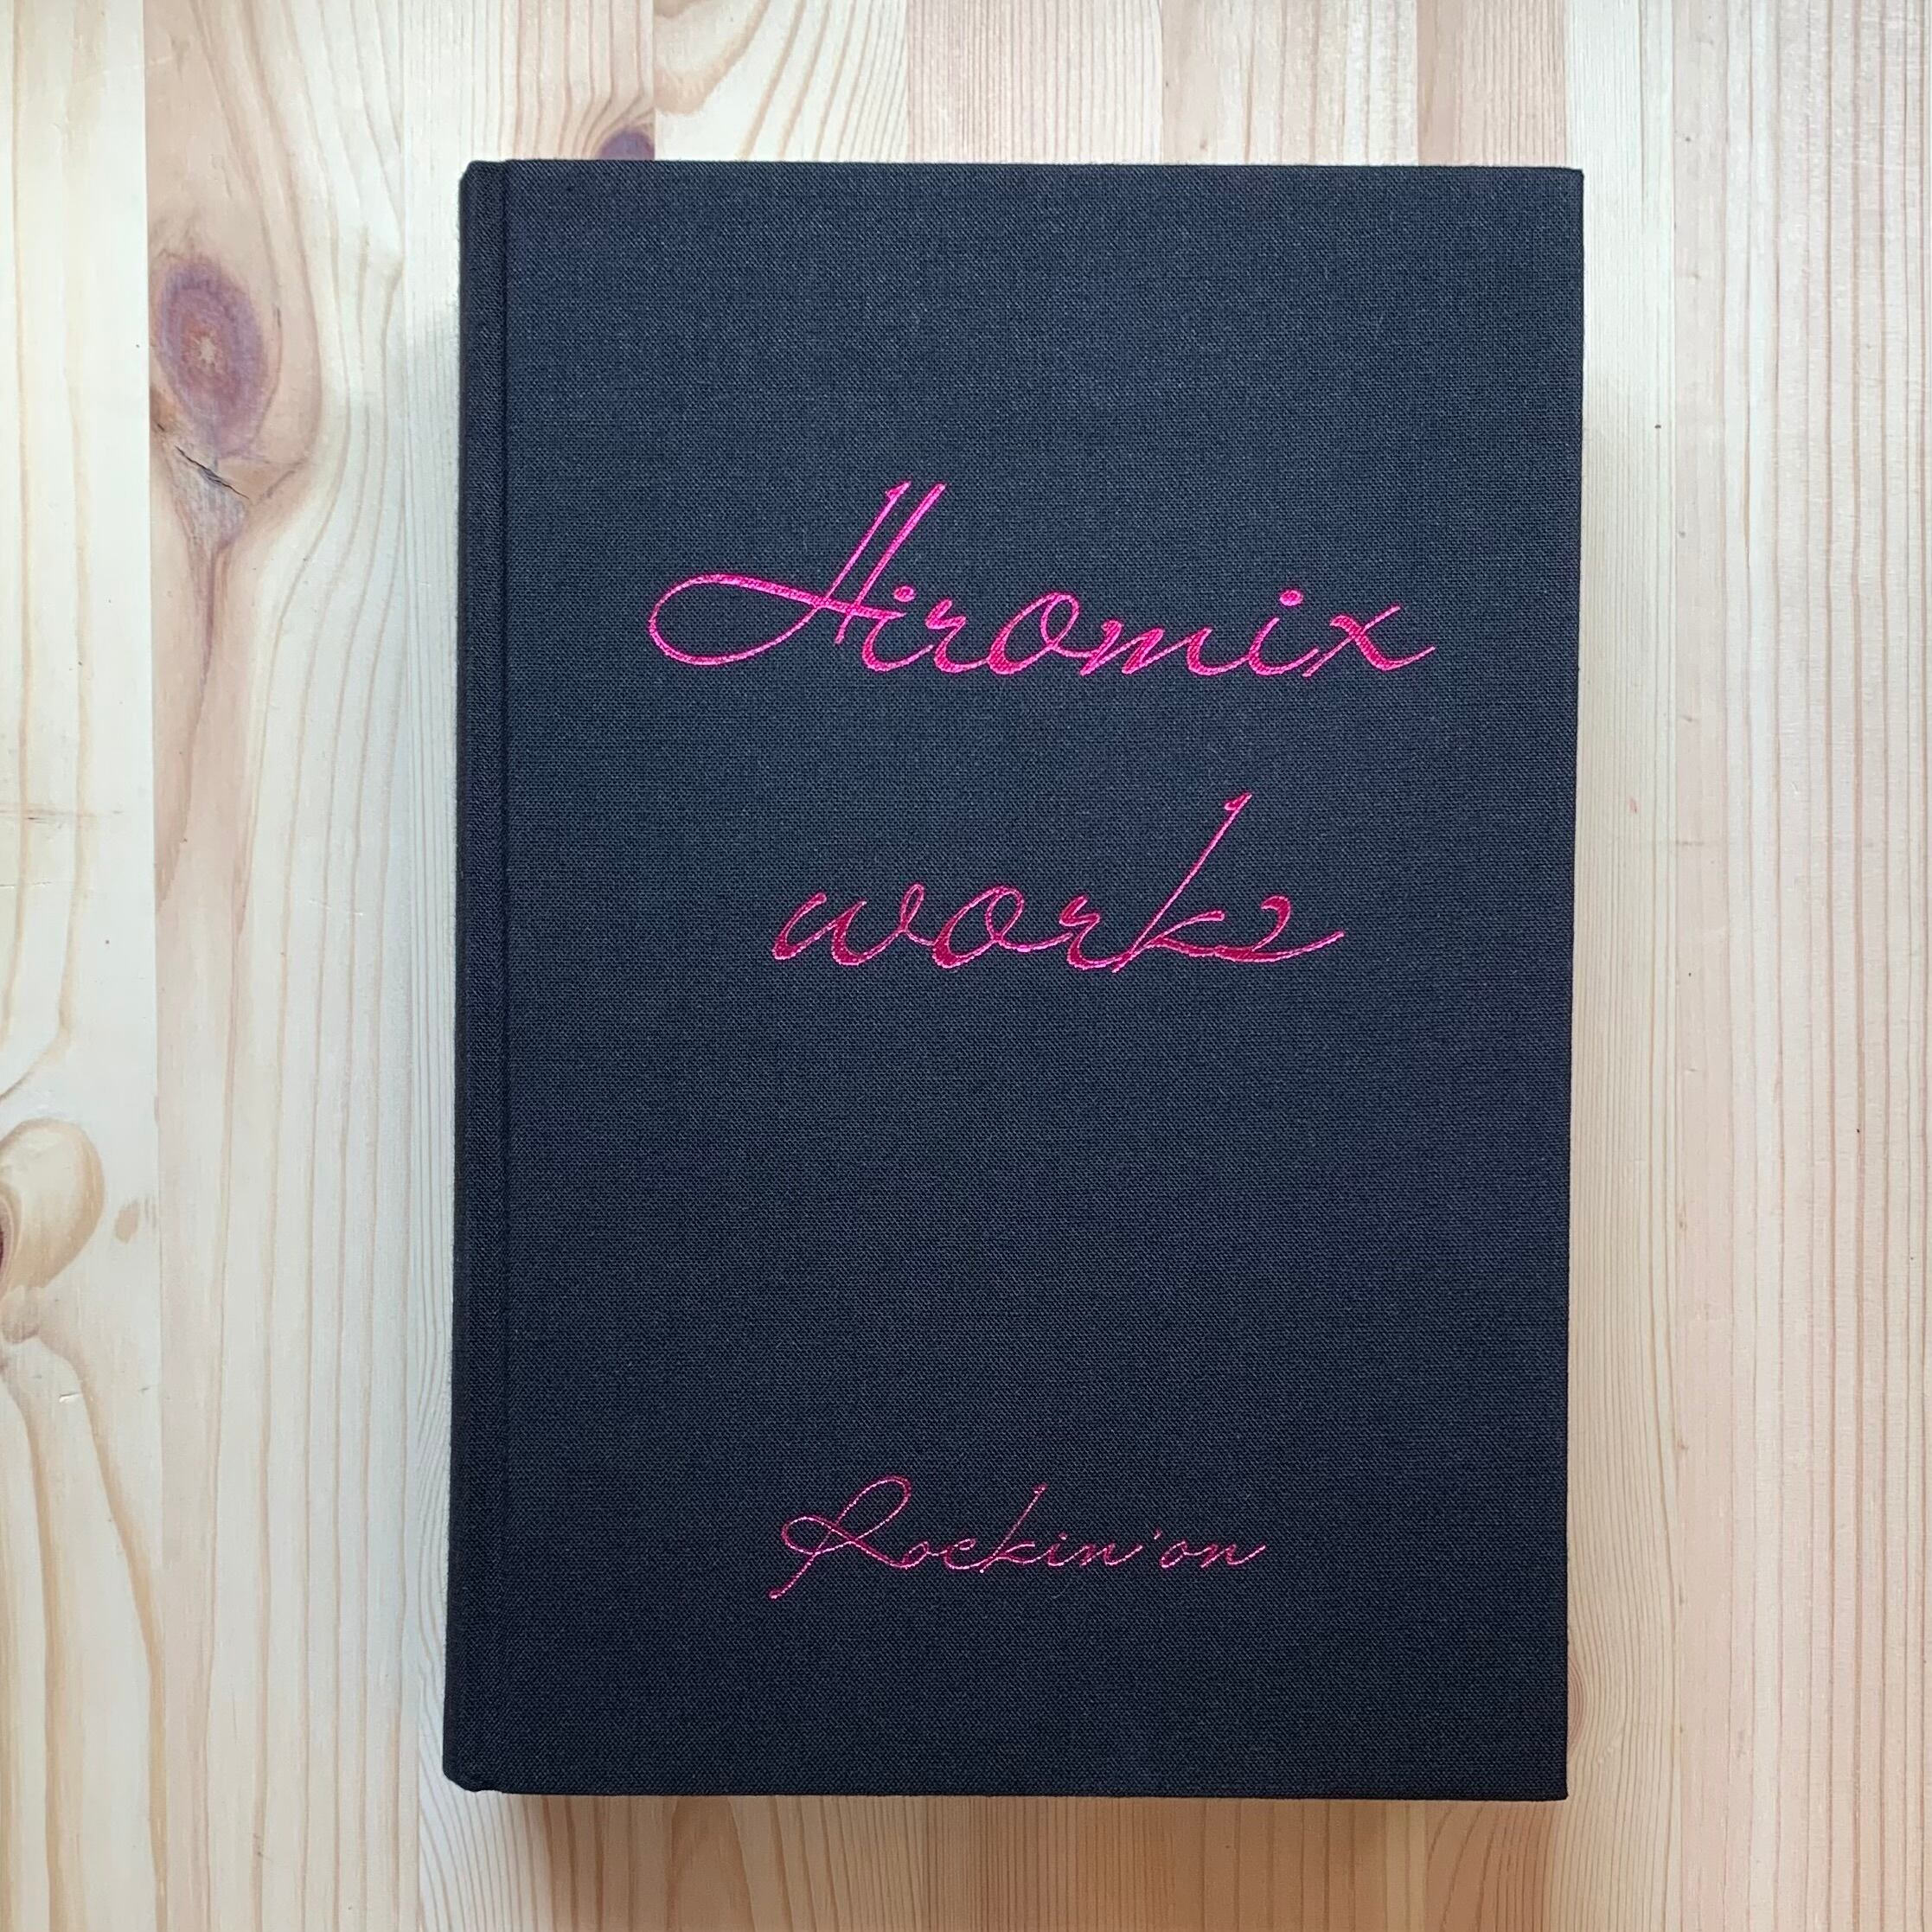 Hiromix
works
Rockin'on